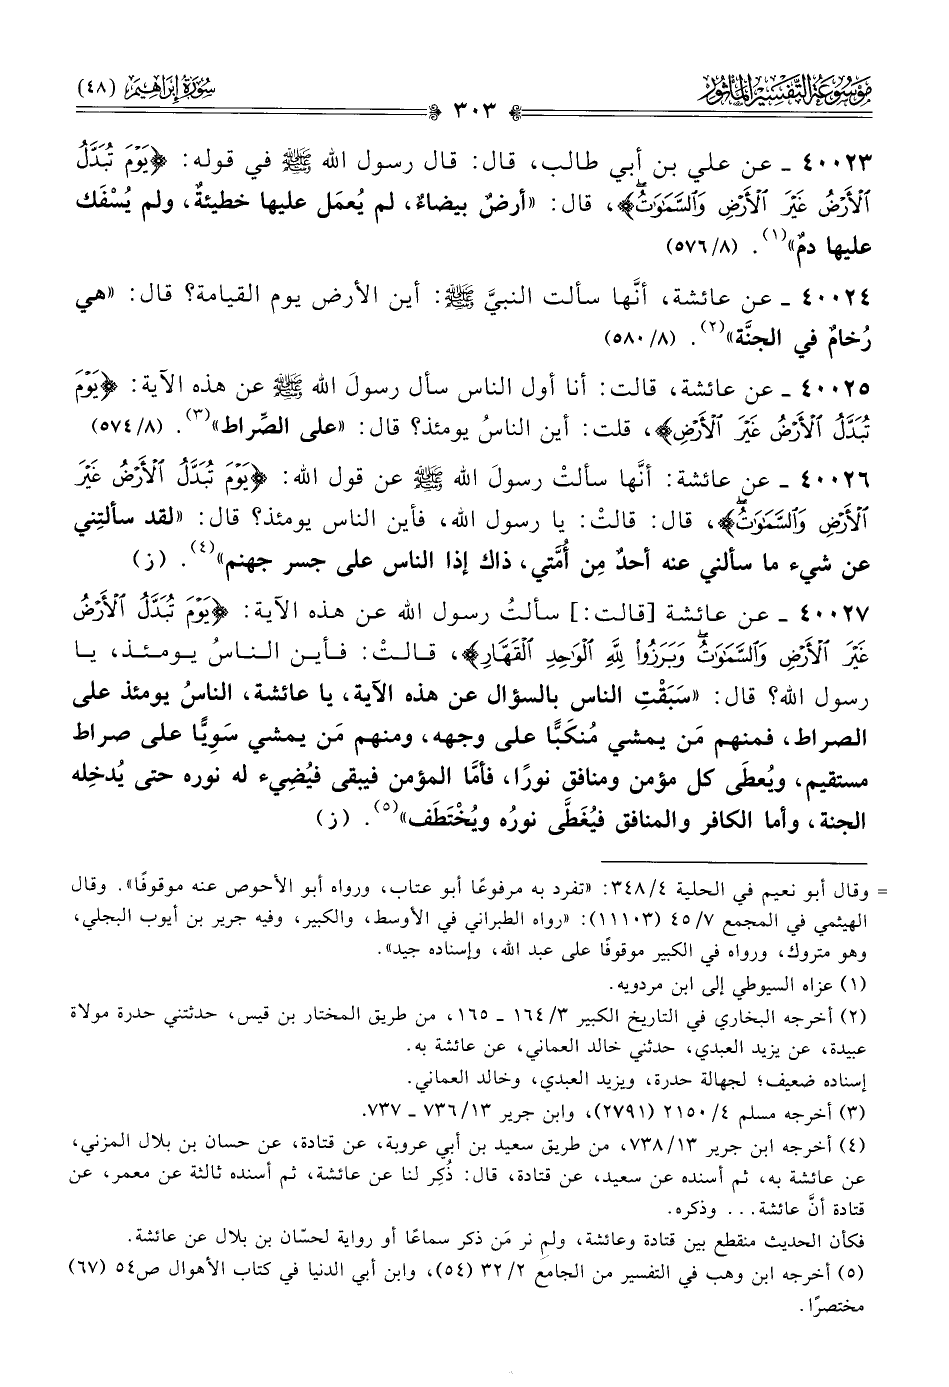 موسوعة التفسير المأثور
سورة إبراهيم (٤٨)
٣٠٣
٤٠٠٢٣ ـ عن علي بن أبي طالب، قال: قال رسول الله ﷺ في قوله: ﴿يَوْمَ تُبَدَّلُ
ٱلْأَرْضُ غَيْرَ ٱلْأَرْضِ وَٱلسَّمَٰوَٰتُۖ﴾، قال: «أرضٌ بيضاءُ، لم يُعمَل عليها خطيئةٌ، ولم يُسْفَك
عليها دمٌ»(١). (٥٧٦/٨)
٤٠٠٢٤ ـ عن عائشة، أنَّها سألت النبيَّ ﷺ: أين الأرض يوم القيامة؟ قال: «هي
رُخامٌ في الجنَّة»(٢). (٥٨٠/٨)
٤٠٠٢٥ ـ عن عائشة، قالت: أنا أول الناس سأل رسولَ الله ﷺ عن هذه الآية: ﴿يَوْمَ
تُبَدَّلُ ٱلْأَرْضُ غَيْرَ ٱلْأَرْضِ﴾، قلت: أين الناسُ يومئذ؟ قال: «على الصِّراط»(٣). (٥٧٤/٨)
٤٠٠٢٦ ـ عن عائشة: أنَّها سألتْ رسولَ الله ﷺ عن قول الله: ﴿يَوْمَ تُبَدَّلُ ٱلْأَرْضُ غَيْرَ
ٱلْأَرْضِ وَٱلسَّمَٰوَٰتُۖ﴾، قال: قالتْ: يا رسول الله، فأين الناس يومئذ؟ قال: «لقد سألتِني
عن شيء ما سألني عنه أحدٌ مِن أُمَّتي، ذاك إذا الناس على جسر جهنم»(٤). (ز)
٤٠٠٢٧ ـ عن عائشة [قالت:] سألتُ رسول الله عن هذه الآية: ﴿يَوْمَ تُبَدَّلُ ٱلْأَرْضُ
غَيْرَ ٱلْأَرْضِ وَٱلسَّمَٰوَٰتُۖ وَبَرَزُوا۟ لِلَّهِ ٱلْوَٰحِدِ ٱلْقَهَّارِ﴾، قالتْ: فأين الناسُ يومئذ، يا
رسول الله؟ قال: «سَبَقْتِ الناس بالسؤال عن هذه الآية، يا عائشة، الناسُ يومئذ على
الصراط، فمنهم مَن يمشي مُنكَبًّا على وجهه، ومنهم مَن يمشي سَوِيًّا على صراط
مستقيم، ويُعطَى كل مؤمن ومنافق نورًا، فأمَّا المؤمن فيبقى فيُضِيء له نوره حتى يُدخِله
الجنة، وأما الكافر والمنافق فيُغَطَّى نورُه ويُخْتَطَف»(٥). (ز)
= وقال أبو نعيم في الحلية ٣٤٨/٤: «تفرد به مرفوعًا أبو عتاب، ورواه أبو الأحوص عنه موقوفًا». وقال
الهيثمي في المجمع ٤٥/٧ (١١١٠٣): «رواه الطبراني في الأوسط، والكبير، وفيه جرير بن أيوب البجلي،
وهو متروك، ورواه في الكبير موقوفًا على عبد الله، وإسناده جيد».
(١) عزاه السيوطي إلى ابن مردويه.
(٢) أخرجه البخاري في التاريخ الكبير ١٦٤/٣ ـ ١٦٥، من طريق المختار بن قيس، حدثتني حدرة مولاة
عبيدة، عن يزيد العبدي، حدثني خالد العماني، عن عائشة به.
إسناده ضعيف؛ لجهالة حدرة، ويزيد العبدي، وخالد العماني.
(٣) أخرجه مسلم ٢١٥٠/٤ (٢٧٩١)، وابن جرير ٧٣٦/١٣ ـ ٧٣٧.
(٤) أخرجه ابن جرير ٧٣٨/١٣، من طريق سعيد بن أبي عروبة، عن قتادة، عن حسان بن بلال المزني،
عن عائشة به، ثم أسنده عن سعيد، عن قتادة، قال: ذُكِر لنا عن عائشة، ثم أسنده ثالثة عن معمر، عن
قتادة أنَّ عائشة... وذكره.
فكأن الحديث منقطع بين قتادة وعائشة، ولم نر مَن ذكر سماعًا أو رواية لحسّان بن بلال عن عائشة.
(٥) أخرجه ابن وهب في التفسير من الجامع ٣٢/٢ (٥٤)، وابن أبي الدنيا في كتاب الأهوال ص٥٤ (٦٧)
مختصرًا.